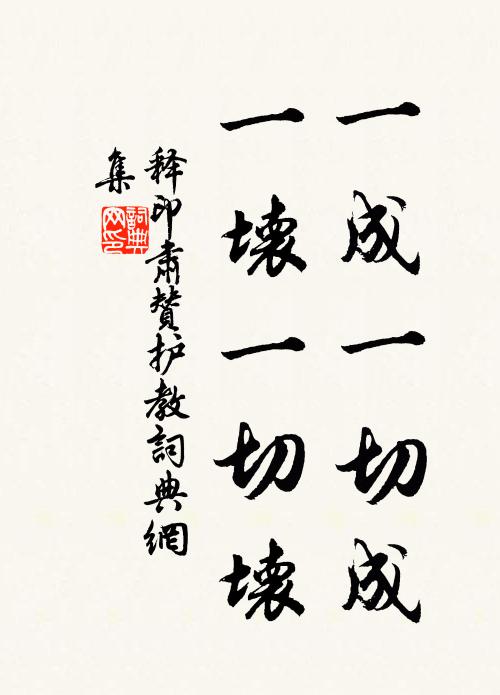 一成一切成
一壞一切壞
释印肃贊护教詞典網
集
詞典網印